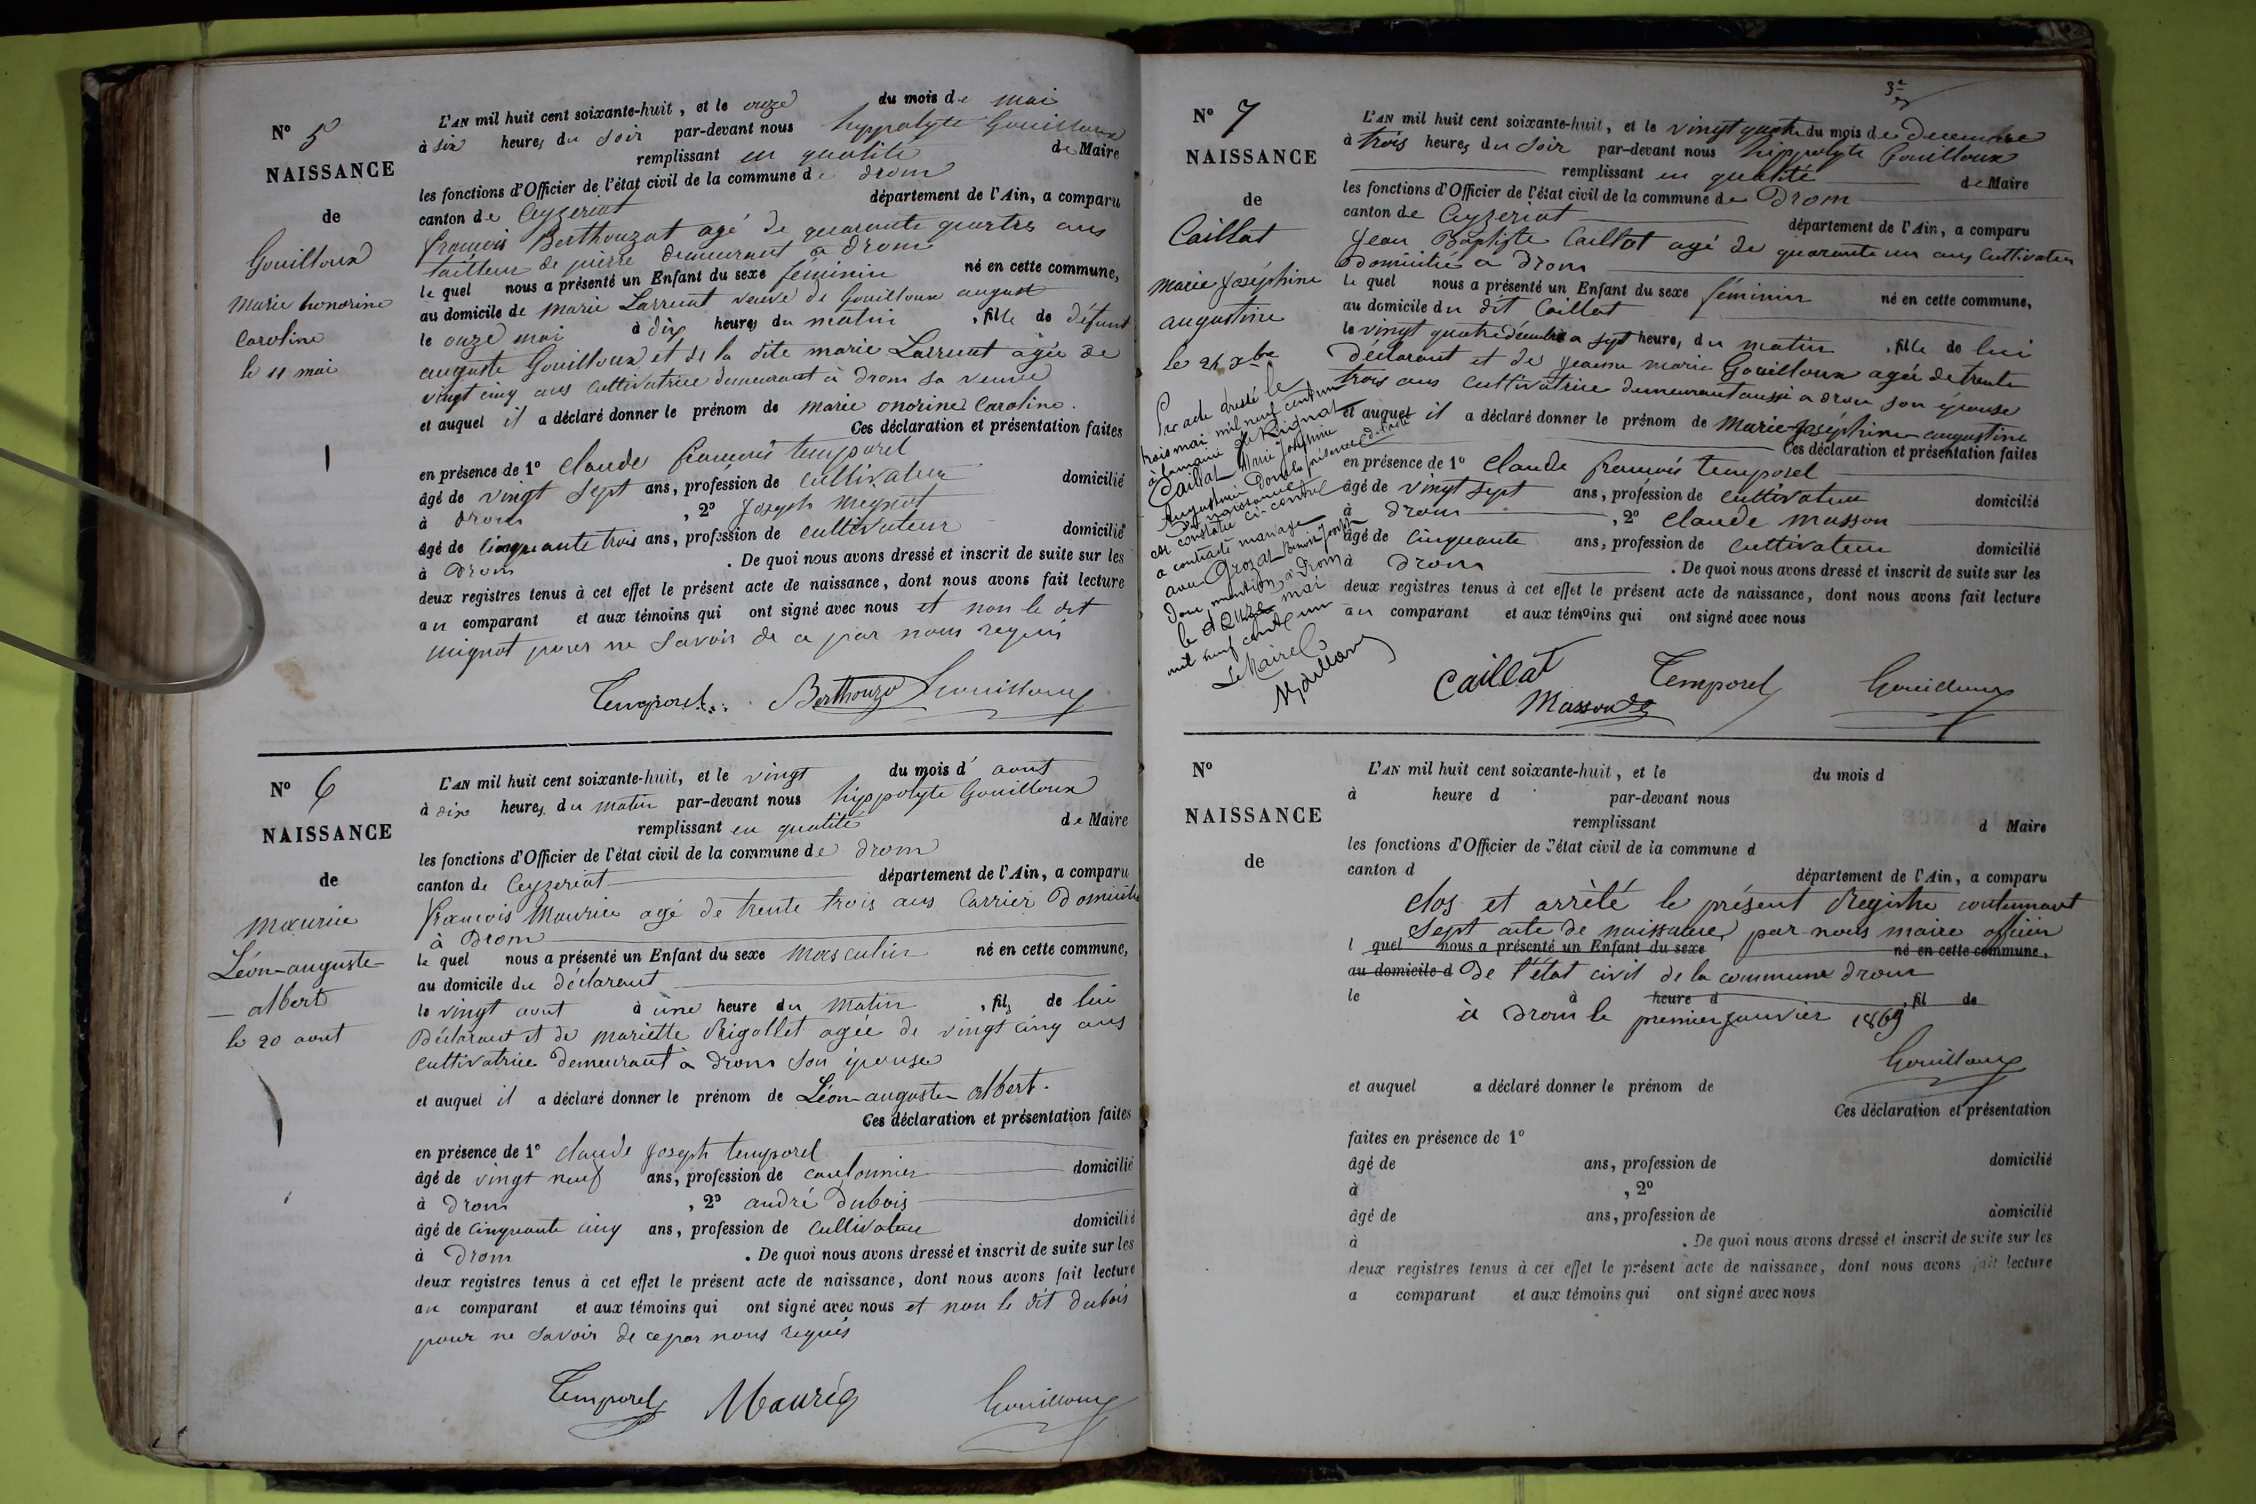 N° 5
NAISSANCE
de
Gouilloux
Marie honorine
Caroline
le 11 mai
L'AN mil huit cent soixante-huit, et le onze du mois de mai
à six heures du soir par-devant nous hyppolyte Gouilloux
remplissant en qualité de Maire
les fonctions d'Officier de l'état civil de la commune de drom
canton de Ceyzeriat département de l'Ain, a comparu
françois Berthouzat agé de quarante quatres ans
tailleur de pierre demeurant a drom
le quel nous a présenté un Enfant du sexe féminin né en cette commune,
au domicile de Marie Larruat veuve de Gouilloux august
le onze mai à dix heures du matin, fille de défunt
auguste Gouilloux et de la dite marie Larruat agée de
vingt cinq ans cultivatrice demeurant à drom sa veuve
et auquel il a déclaré donner le prénom de marie onorine Caroline.
Ces déclaration et présentation faites
en présence de 1° claude françois temporel
âgé de vingt sept ans, profession de cultivateur domicilié
à drom, 2° Joseph
âgé de cinquante trois ans, profession de cultivateur domicilié
à drom. De quoi nous avons dressé et inscrit de suite sur les
deux registres tenus à cet effet le présent acte de naissance, dont nous avons fait lecture
au comparant et aux témoins qui ont signé avec nous et non le dit
mignot pour ne savoir de ce par nous requis
Temporel Berthouzo Gouilloux
N° 6
NAISSANCE
de
Maurice
Léon-auguste
albert
le 20 aout
L'AN mil huit cent soixante-huit, et le vingt du mois d'aout
à dix heures du matin par-devant nous hippolyte Gouilloux
remplissant en qualité de Maire
les fonctions d'Officier de l'état civil de la commune de drom
canton de Ceyzeriat département de l'Ain, a comparu
françois Maurice agé de trente trois ans Carrier Domicilié
à Drom
le quel nous a présenté un Enfant du sexe masculin né en cette commune,
au domicile du déclarant
le vingt aout à une heure du matin, fils de lui
Déclarant et de mariette Rigollet agée de vingt cinq ans
cultivatrice demeurant à drom son épouse
et auquel il a déclaré donner le prénom de Léon auguste albert.
Ces déclaration et présentation faites
en présence de 1° claude Joseph temporel
âgé de vingt neuf ans, profession de cantonnier domicilié
à drom, 2° andré Dubois
âgé de cinquante cinq ans, profession de cultivateur domicilié
à Drom. De quoi nous avons dressé et inscrit de suite sur les
deux registres tenus à cet effet le présent acte de naissance, dont nous avons fait lecture
au comparant et aux témoins qui ont signé avec nous et non le dit dubois
pour ne savoir de ce par nous requis
Temporel Maurice Gouilloux
3e
N° 7
NAISSANCE
de
Caillat
Marie Joséphine
augustine
le 24 xbre
Par acte dressé le
trois mai mil neuf cent un
à la mairie de Rignat
Caillat Marie Joséphine
Augustine dont la naissance
est constatée ci-contre
a contracté mariage
avec Grozat Benoit Joseph
Dont mention, à Drom
le Onze mai
mil neuf cent un
Le Maire
L'AN mil huit cent soixante-huit, et le vingt quatre du mois de decembre
à trois heures du soir par-devant nous hippolyte Gouilloux
remplissant en qualité de Maire
les fonctions d'Officier de l'état civil de la commune de Drom
canton de Ceyzeriat département de l'Ain, a comparu
Jean Baptiste Caillat agé de quarante un ans Cultivateur
Domicilié a drom
le quel nous a présenté un Enfant du sexe féminin né en cette commune,
au domicile du dit Caillat
le vingt quatre décembre a sept heures du matin, fille de lui
déclarant et de Jeanne marie Gouilloux agée de trente
trois ans cultivatrice demeurant aussi a drom son épouse
et auquel il a déclaré donner le prénom de Marie-Joséphine augustine
Ces déclaration et présentation faites
en présence de 1° claude françois temporel
âgé de vingt sept ans, profession de cultivateur domicilié
à drom, 2° claude Masson
âgé de cinquante ans, profession de cultivateur domicilié
à drom. De quoi nous avons dressé et inscrit de suite sur les
deux registres tenus à cet effet le présent acte de naissance, dont nous avons fait lecture
au comparant et aux témoins qui ont signé avec nous
Caillat Temporel Gouilloux
Masson
N°
NAISSANCE
de
L'AN mil huit cent soixante-huit, et le du mois d
à heure d par-devant nous
remplissant d Maire
les fonctions d'Officier de l'état civil de la commune d
canton d département de l'Ain, a comparu
clos et arrêté le présent Registre contennant
Sept acte de naissance par nous maire officier
l quel nous a présenté un Enfant du sexe né en cette commune,
au domicile d de l'état civil de la commune drom
le à heure d, fil de
à drom le premier janvier 1869
Gouilloux
et auquel a déclaré donner le prénom de
Ces déclaration et présentation
faites en présence de 1°
âgé de ans, profession de domicilié
à, 2°
âgé de ans, profession de domicilié
à. De quoi nous avons dressé et inscrit de suite sur les
deux registres tenus à cet effet le présent acte de naissance, dont nous avons fait lecture
a comparant et aux témoins qui ont signé avec nous